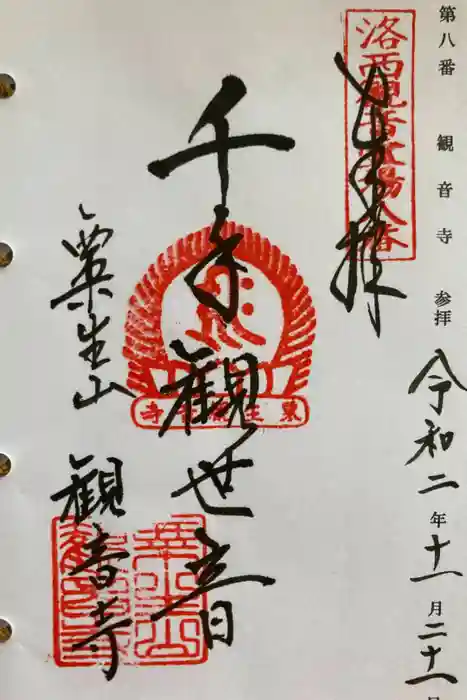 第八番 観音寺 参拝 令和二年十一月二十一日
奉拝
洛西観音霊場八番
千手観世音
粟生山 観音寺